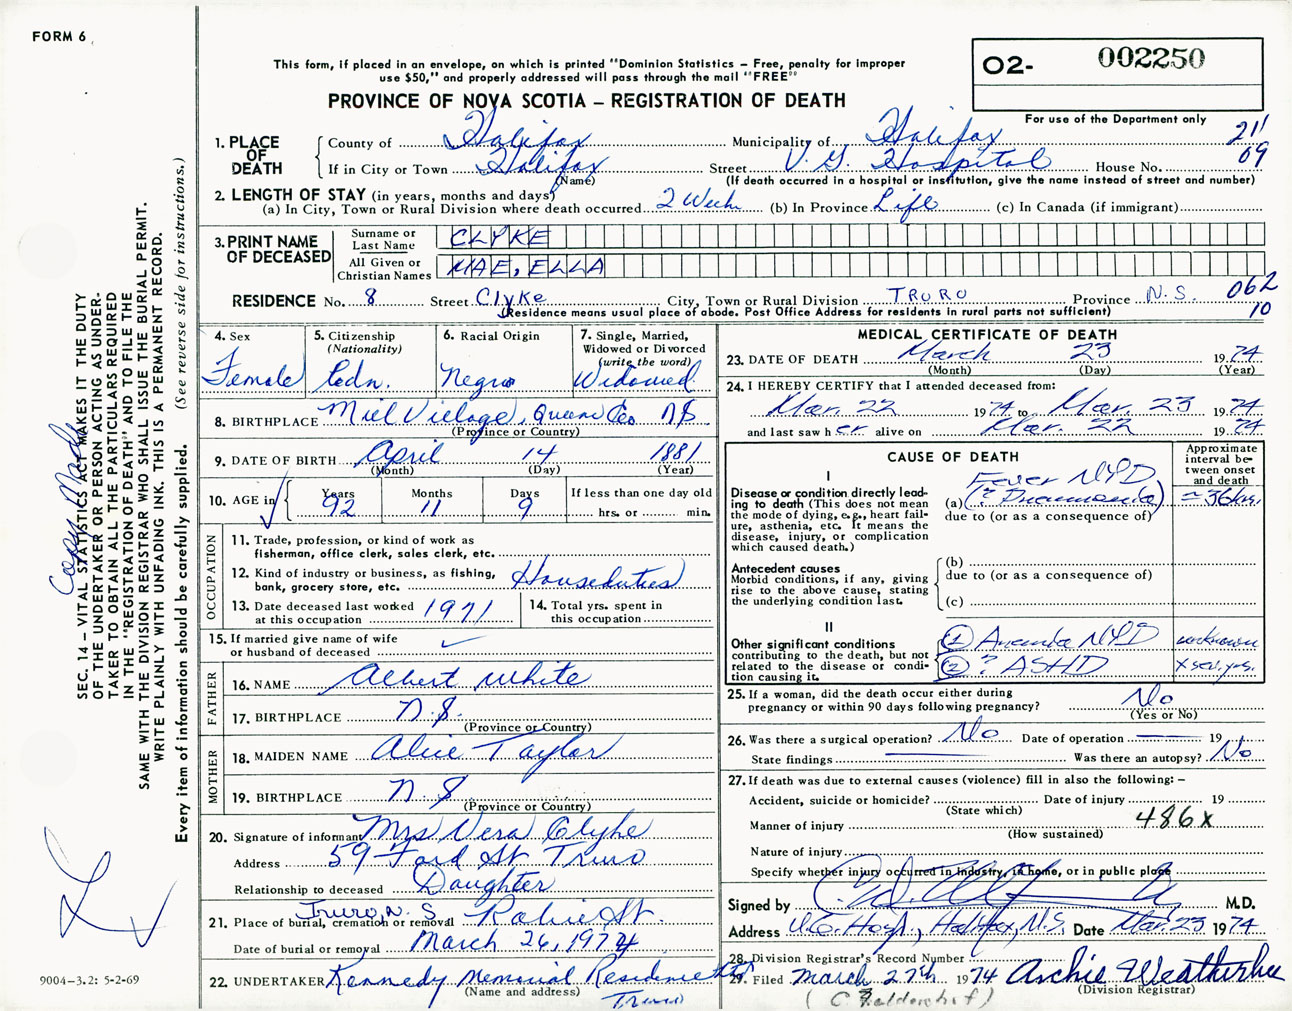 FORM 6
This form, if placed in an envelope, on which is printed "Dominion Statistics – Free, penalty for improper
use $50," and properly addressed will pass through the mail "FREE"
PROVINCE OF NOVA SCOTIA – REGISTRATION OF DEATH
02- 002250
For use of the Department only
211
09
1. PLACE OF DEATH
County of Halifax Municipality of Halifax
If in City or Town Halifax Street V. G. Hospital House No.
(Name) (If death occurred in a hospital or institution, give the name instead of street and number)
2. LENGTH OF STAY (in years, months and days)
(a) In City, Town or Rural Division where death occurred 2 Weeks (b) In Province Life (c) In Canada (if immigrant)
3. PRINT NAME OF DECEASED
Surname or Last Name CLYKE
All Given or Christian Names MAE, ELLA
RESIDENCE No. 8 Street Clyke City, Town or Rural Division TRURO Province N.S.
062
10
(Residence means usual place of abode. Post Office Address for residents in rural parts not sufficient)
4. Sex
Female
5. Citizenship
(Nationality)
Cdn.
6. Racial Origin
Negro
7. Single, Married,
Widowed or Divorced
(write the word)
Widowed
8. BIRTHPLACE Mill Village, Queens Co. NS
(Province or Country)
9. DATE OF BIRTH April 14 1881
(Month) (Day) (Year)
10. AGE in
Years Months Days If less than one day old
92 11 9 hrs. or min.
OCCUPATION
11. Trade, profession, or kind of work as
fisherman, office clerk, sales clerk, etc.
12. Kind of industry or business, as fishing,
bank, grocery store, etc. Houseduties
13. Date deceased last worked
at this occupation 1971
14. Total yrs. spent in
this occupation
15. If married give name of wife
or husband of deceased
FATHER
16. NAME Albert White
17. BIRTHPLACE N.S.
(Province or Country)
MOTHER
18. MAIDEN NAME Alice Taylor
19. BIRTHPLACE N.S.
(Province or Country)
20. Signature of informant Mrs Vera Clyke
Address 59 Ford St Truro
Relationship to deceased Daughter
21. Place of burial, cremation or removal Truro, N.S. Robie St.
Date of burial or removal March 26, 1974
22. UNDERTAKER Kennedy Memorial Residence
(Name and address) Truro
MEDICAL CERTIFICATE OF DEATH
23. DATE OF DEATH March 23 1974
(Month) (Day) (Year)
24. I HEREBY CERTIFY that I attended deceased from:
Mar. 22 1974 to Mar. 23 1974
and last saw her alive on Mar. 22 1974
CAUSE OF DEATH
Approximate
interval be-
tween onset
and death
I
Disease or condition directly lead-
ing to death (This does not mean
the mode of dying, e.g., heart fail-
ure, asthenia, etc. It means the
disease, injury, or complication
which caused death.)
Fever NYD
(a) (? Pneumonia) = 36 hrs.
due to (or as a consequence of)
Antecedent causes
Morbid conditions, if any, giving
rise to the above cause, stating
the underlying condition last.
(b)
due to (or as a consequence of)
(c)
II
Other significant conditions
contributing to the death, but not
related to the disease or condi-
tion causing it.
(1) NYD unknown
(2) ? ASHD x sev. yrs.
25. If a woman, did the death occur either during
pregnancy or within 90 days following pregnancy? No
(Yes or No)
26. Was there a surgical operation? No Date of operation 19
State findings Was there an autopsy? No
27. If death was due to external causes (violence) fill in also the following: –
Accident, suicide or homicide? Date of injury 19
(State which)
Manner of injury 486x
(How sustained)
Nature of injury
Specify whether injury occurred in industry, in home, or in public place
Signed by M.D.
Address V.G. Hosp., Halifax, N.S. Date Mar. 23 1974
28. Division Registrar's Record Number
29. Filed March 27th 1974 Archie Weatherbee
(Division Registrar)
SEC. 14 – VITAL STATISTICS ACT MAKES IT THE DUTY
OF THE UNDERTAKER OR PERSON ACTING AS UNDER-
TAKER TO OBTAIN ALL THE PARTICULARS REQUIRED
IN THE "REGISTRATION OF DEATH" AND TO FILE THE
SAME WITH THE DIVISION REGISTRAR WHO SHALL ISSUE THE BURIAL PERMIT.
WRITE PLAINLY WITH UNFADING INK. THIS IS A PERMANENT RECORD.
Every item of information should be carefully supplied. (See reverse side for instructions.)
Copy Made
9004-3.2: 5-2-69